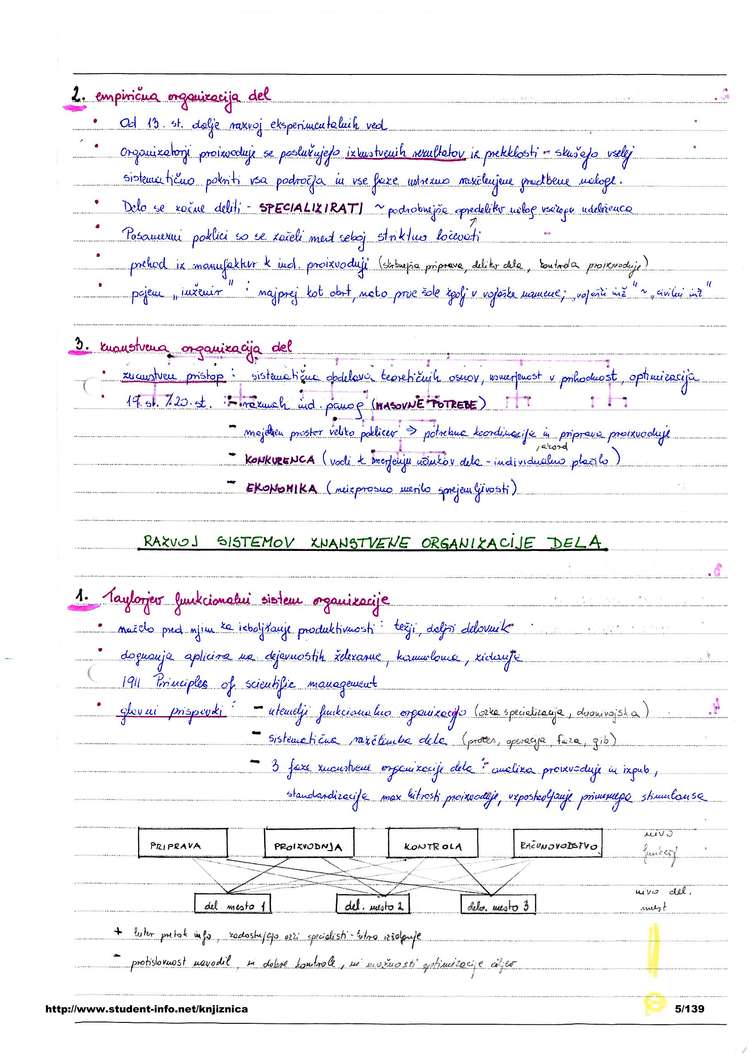 2. empirična organizacija del
• Od 13. st. dalje razvoj eksperimentalnih ved
• Organizatorji proizvodnje se poslužujejo izkustvenih rezultatov iz preteklosti - skušajo vselej
sistematično pokriti vsa področja in vse faze ustrezno razčlenjene gradbene naloge.
• Delo se začne deliti - SPECIALIZIRATI ~ podrobnejša opredelitev nalog vsakega udeleženca
• Posamezni poklici so se začeli med seboj striktno ločevati
• prehod iz manufaktur k ind. proizvodnji (skrbnejša priprava, delitev dela, kontrola proizvodnje)
• pojem „inženir" : najprej kot obrt, nato prve šole zgolj v vojaške namene; „vojaški inž" ~ „civilni inž"
3. znanstvena organizacija del
• znanstven pristop : sistematična obdelava teoretičnih osnov, usmerjenost v prihodnost, optimizacija
• 19. st. / 20. st. : - razmah ind. panog (MASOVNE POTREBE)
- majhen prostor veliko poklicev => potrebna koordinacija in priprava proizvodnje
- KONKURENCA (vodi k merjenju učinkov dela - individualno plačilo)
, akord
- EKONOMIKA (neizprosno merilo sprejemljivosti)
RAZVOJ SISTEMOV ZNANSTVENE ORGANIZACIJE DELA
1. Taylorjev funkcionalni sistem organizacije
• načelo pred njim za izboljšanje produktivnosti : težji, daljši delovnik
• dognanja aplicira na dejavnostih železarne, kamnoloma, zidanje
1911 Principles of scientific management
• glavni prispevki : - utemelji funkcionalno organizacijo (ozka specializacija, dvonivojska)
- sistematična razčlemba dela (proces, operacija, faza, gib)
- 3 faze znanstvene organizacije dela : analiza proizvodnje in izgub,
standardizacija max hitrosti proizvodnje, vzpostavljanje primernega stimulansa
PRIPRAVA PROIZVODNJA KONTROLA RAČUNOVODSTVO nivo
funkcij
del mesto 1 del. mesto 2 delo. mesto 3 nivo del.
mest
+ hiter pretok info, zadostujejo ožji specialisti - hitro izšolanje
- protislovnost navodil, ni dobre kontrole, ni možnosti optimizacije
http://www.student-info.net/knjiznica 5/139